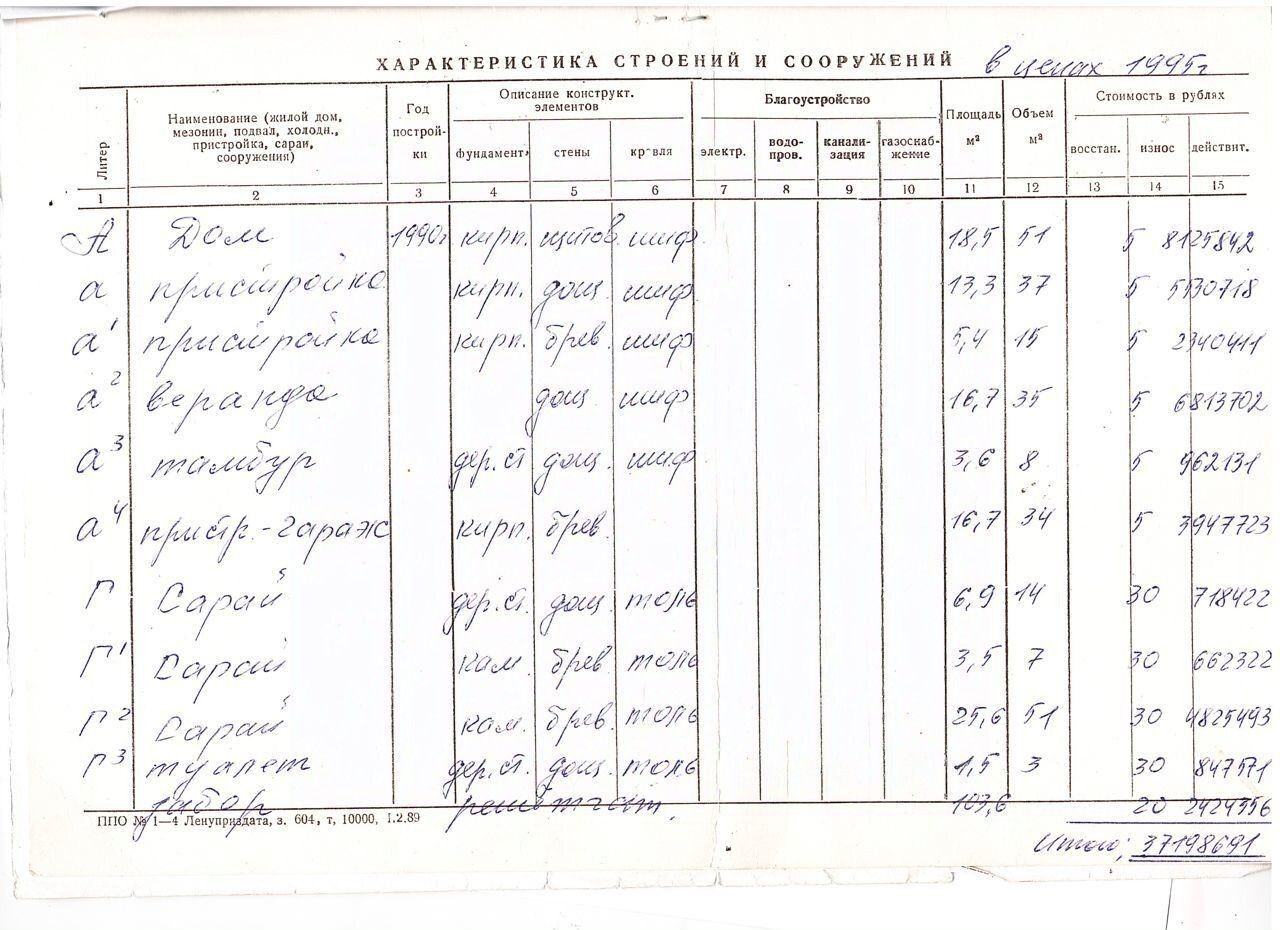 ХАРАКТЕРИСТИКА СТРОЕНИЙ И СООРУЖЕНИЙ в ценах 1995г
Литер
Наименование (жилой дом, мезонин, подвал, холодн., пристройка, сараи, сооружения)
Год построй-ки
Описание конструкт. элементов
Благоустройство
Площадь м²
Объем м³
Стоимость в рублях
фундамент стены кровля электр. водо-пров. канали-зация газоснаб-жение восстан. износ действит.
1 2 3 4 5 6 7 8 9 10 11 12 13 14 15
А Дом 1990г кирп. щитов. шиф. 18,5 51 5 8125842
а пристройка кирп. дощ. шиф. 13,3 37 5 5530718
а¹ пристройка кирп. брев. шиф 5,4 15 5 2340411
а² веранда дощ. шиф 16,7 35 5 6813702
а³ тамбур дер.ст дощ. шиф 3,6 8 5 962131
а⁴ пристр.-гараж кирп. брев. 16,7 34 5 3947723
Г Сарай дер.ст. дощ. толь 6,9 14 30 718422
Г¹ Сарай кам. брев толь 3,5 7 30 662322
Г² Сарай кам. брев. толь 25,6 51 30 4825493
Г³ туалет дер.ст. дощ. толь 1,5 3 30 847571
забор решетчат. 103,6 20 2424356
ППО № 1—4 Ленуприздата, з. 604, т, 10000, 1.2.89
Итого: 37198691